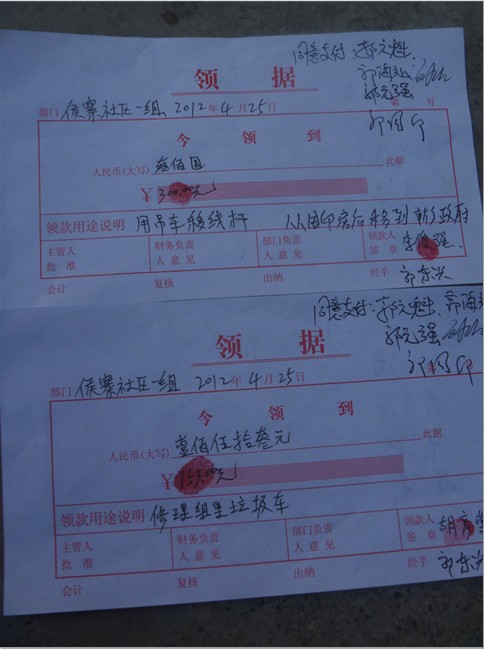 同意支付：郭元魁
郭海
领 据
郭元强
部门 侯寨社区一组 2012年4月25日 第 号
郭国
今 领 到
人民币（大写） 叁佰圆 此据
¥ 300.00元
领款用途说明 用吊车移线杆 从国印房后移到新乡政府
主管人 批准 财务负责人意见 部门负责人意见 领款人签章 李俊瑶
会计 复核 出纳 经手 郭东兴
同意支付：郭元魁、郭海
郭元强
领 据
部门 侯寨社区一组 2012年4月25日
郭国
今 领 到
人民币（大写） 壹佰伍拾叁元 此据
¥ 153.00元
领款用途说明 修理组里垃圾车
主管人 批准 财务负责人意见 部门负责人意见 领款人签章 胡
会计 复核 出纳 经手 郭东兴